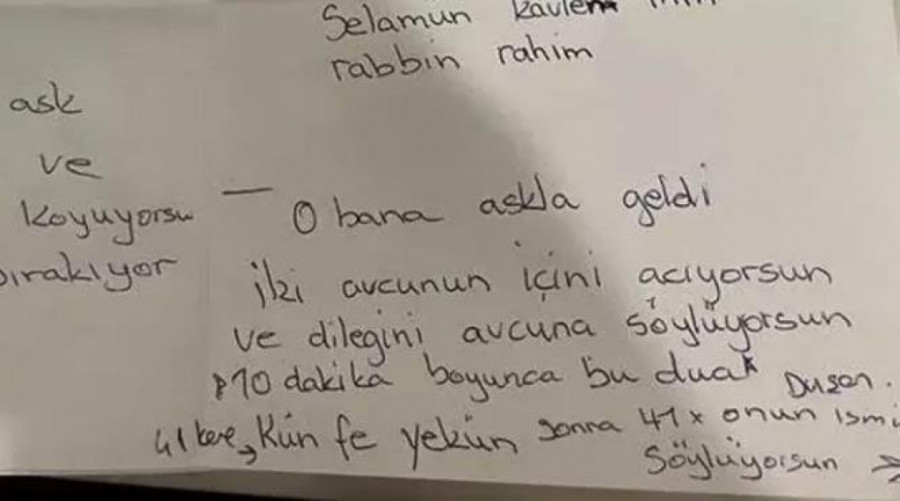 Selamun kavlem
rabbin rahim
ask
ve
koyuyorsu
bırakıyor
— O bana askla geldi
iki avcunun içini acıyorsun
ve dilegini avcuna söylüyorsun
10 dakika boyunca bu duak Dusen.
41 kere, Kün fe yekün sonra 41x onun ismi
söylüyorsun →